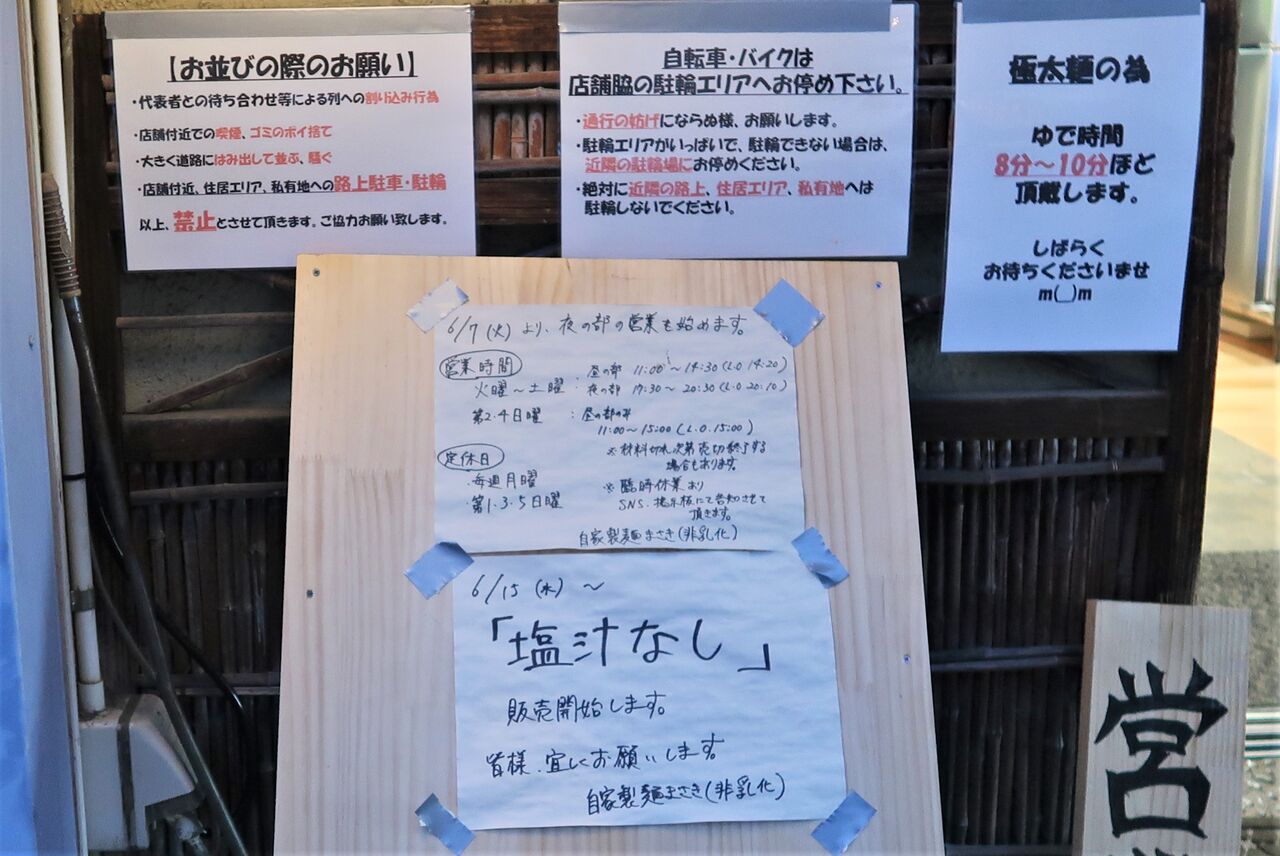 【お並びの際のお願い】
・代表者との待ち合わせ等による列への割り込み行為
・店舗付近での喫煙、ゴミのポイ捨て
・大きく道路にはみ出して並ぶ、騒ぐ
・店舗付近、住居エリア、私有地への路上駐車・駐輪
以上、禁止とさせて頂きます。ご協力お願い致します。
自転車・バイクは
店舗脇の駐輪エリアへお停め下さい。
・通行の妨げにならぬ様、お願いします。
・駐輪エリアがいっぱいで、駐輪できない場合は、
近隣の駐輪場にお停めください。
・絶対に近隣の路上、住居エリア、私有地へは
駐輪しないでください。
極太麺の為
ゆで時間
8分～10分ほど
頂戴します。
しばらく
お待ちくださいませ
m(__)m
6/7(火)より、夜の部の営業も始めます。
営業時間
火曜～土曜：昼の部 11:00～14:30(L.O 14:20)
夜の部 17:30～20:30(L.O 20:10)
第2.4日曜：昼の部のみ
11:00～15:00(L.O.15:00)
※材料切れ次第売切終了する
場合もあります。
定休日
・毎週月曜
第1.3.5日曜
※臨時休業あり
SNS.掲示板にて告知させて
頂きます。
自家製麺まさき(非乳化)
6/15(水)～
「塩汁なし」
販売開始します。
皆様、宜しくお願いします。
自家製麺まさき(非乳化)
営